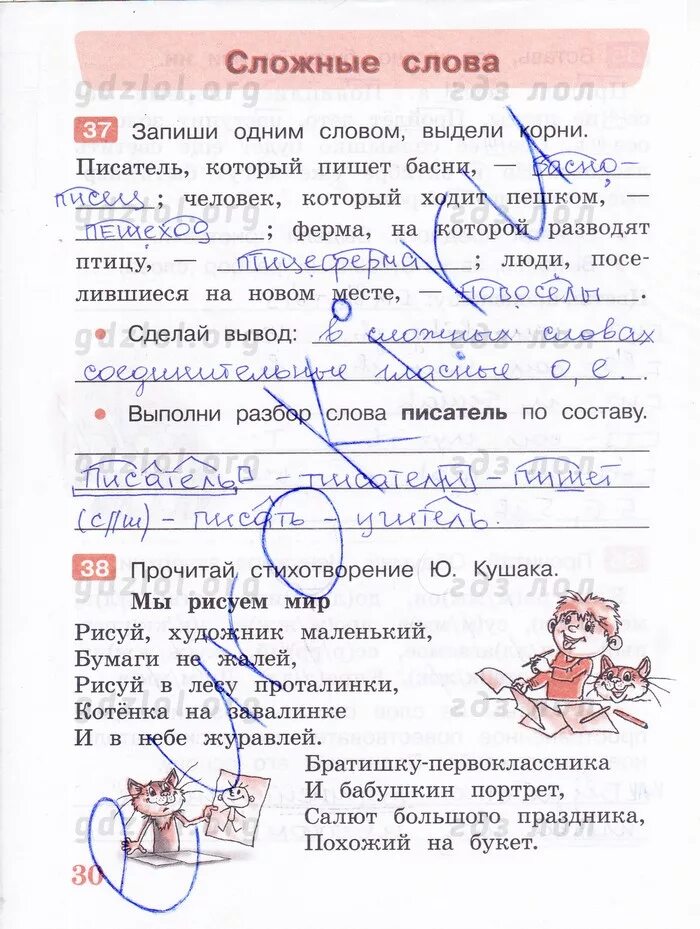 Сложные слова
gdzlol.org гдз лол
37 Запиши одним словом, выдели корни.
Писатель, который пишет басни, — басно-
писец; человек, который ходит пешком, —
пешеход; ферма, на которой разводят
птицу, — птицеферма; люди, посе-
лившиеся на новом месте, — новосёлы.
• Сделай вывод: в сложных словах
соединительные гласные о, е.
• Выполни разбор слова писатель по составу.
Писатель – писатели – пишет
(с//ш) – писать – учитель.
38 Прочитай стихотворение Ю. Кушака.
Мы рисуем мир
Рисуй, художник маленький,
Бумаги не жалей,
Рисуй в лесу проталинки,
Котёнка на завалинке
И в небе журавлей.
Братишку-первоклассника
И бабушкин портрет,
Салют большого праздника,
Похожий на букет.
30